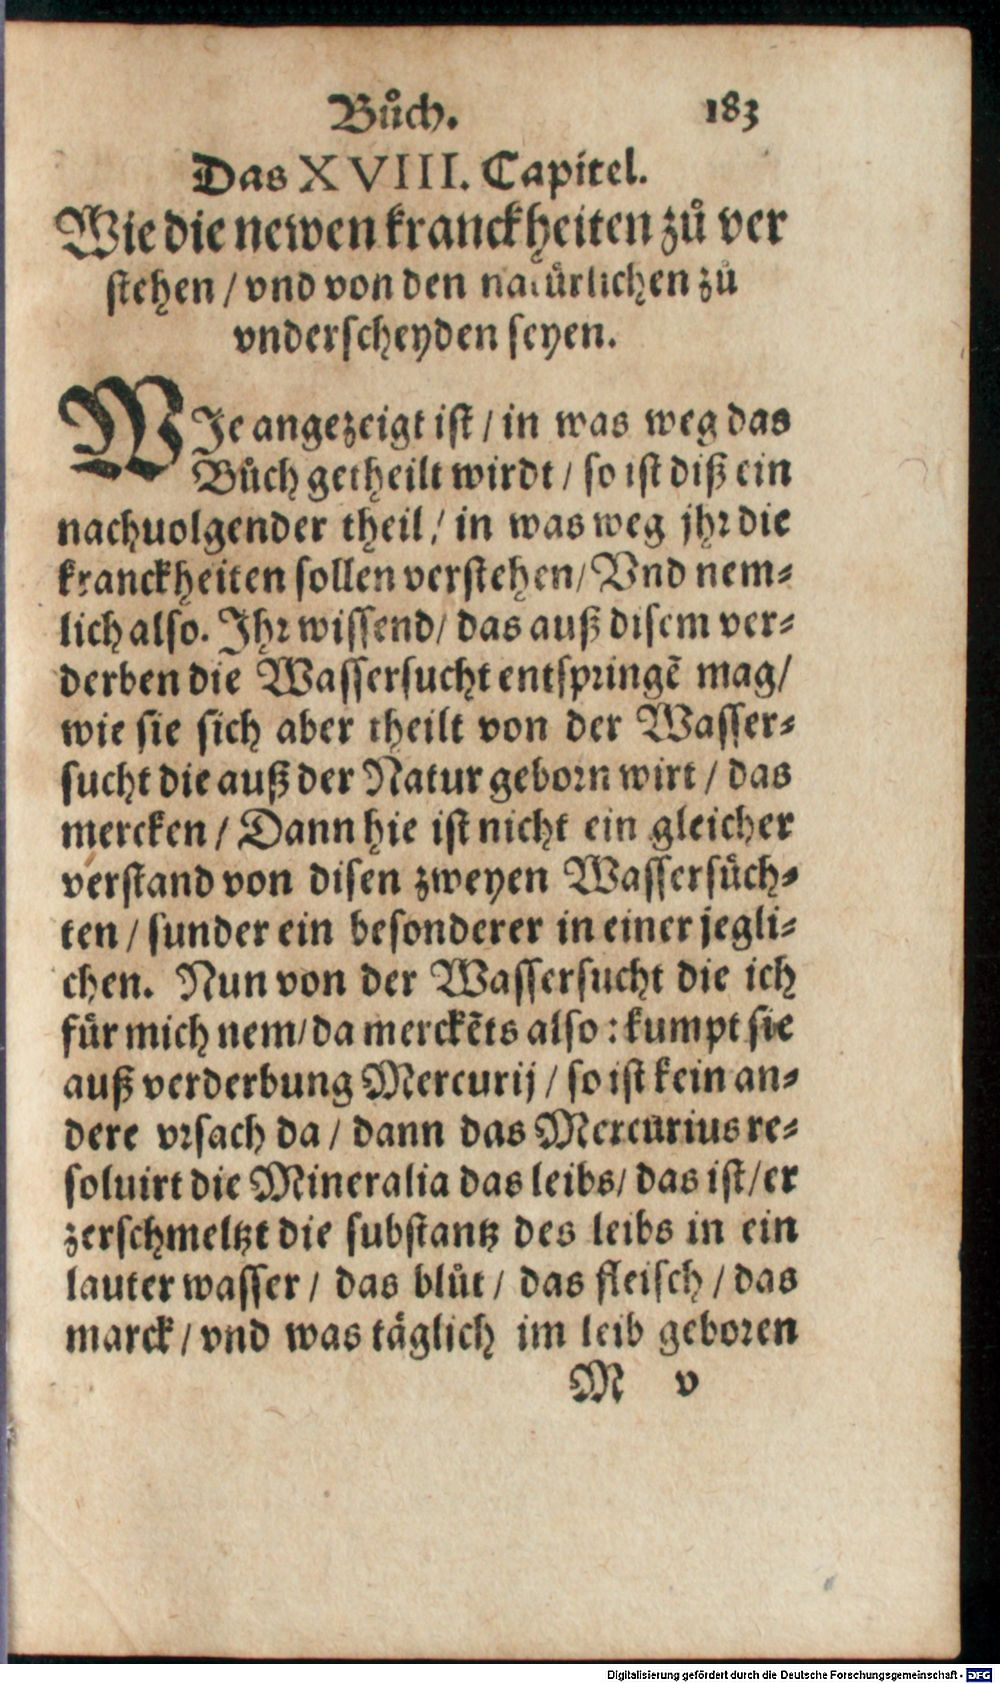 Bůch. 183
Das XVIII. Capitel.
Wie die newen kranckheiten zů ver
stehen / vnd von den natürlichen zů
vnderscheyden seyen.
WJe angezeigt ist / in was weg das
Bůch getheilt wirdt / so ist diß ein
nachuolgender theil / in was weg jhr die
kranckheiten sollen verstehen / Vnd nem⸗
lich also. Jhr wissend / das auß disem ver⸗
derben die Wassersucht entspringē mag /
wie sie sich aber theilt von der Wasser⸗
sucht die auß der Natur geborn wirt / das
mercken / Dann hie ist nicht ein gleicher
verstand von disen zweyen Wassersüch⸗
ten / sunder ein besonderer in einer jegli⸗
chen. Nun von der Wassersucht die ich
für mich nem / da merckēts also : kumpt sie
auß verderbung Mercurij / so ist kein an⸗
dere vrsach da / dann das Mercurius re⸗
soluirt die Mineralia das leibs / das ist / er
zerschmeltzt die substantz des leibs in ein
lauter wasser / das blůt / das fleisch / das
marck / vnd was täglich im leib geboren
M v
Digitalisierung gefördert durch die Deutsche Forschungsgemeinschaft - DFG